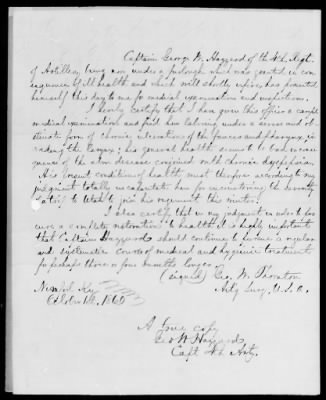 Captain George W. Hazzard of the 4th Regt.
of Artillery, being now under a furlough which was granted in con-
sequence of ill health and which will shortly expire, has presented
himself this day to me for medical examination and inspection.
I hereby certify that I have given this officer a careful
medical examination and find him laboring under a severe and ob-
stinate form of chronic ulceration of the fauces and pharynx, in-
vading the larynx; his general health seems to be bad in conse-
quence of the above disease conjoined with chronic dyspepsia.
His present condition of health must therefore according to my
judgment totally incapacitate him for encountering the
to Utah to join his regiment this winter.
I also certify that in my judgment in order to se-
cure a complete restoration to health it is highly important
that Captain Hazzard should continue to pursue a regular
and systematic course of medical and hygienic treatment
for perhaps three or four months longer.
(signed) Geo. W. Thornton
Newport Ky Asst. Surg. U.S.A.
October 1st, 1860
A true copy
Geo W Hazzard
Capt 4th Arty.